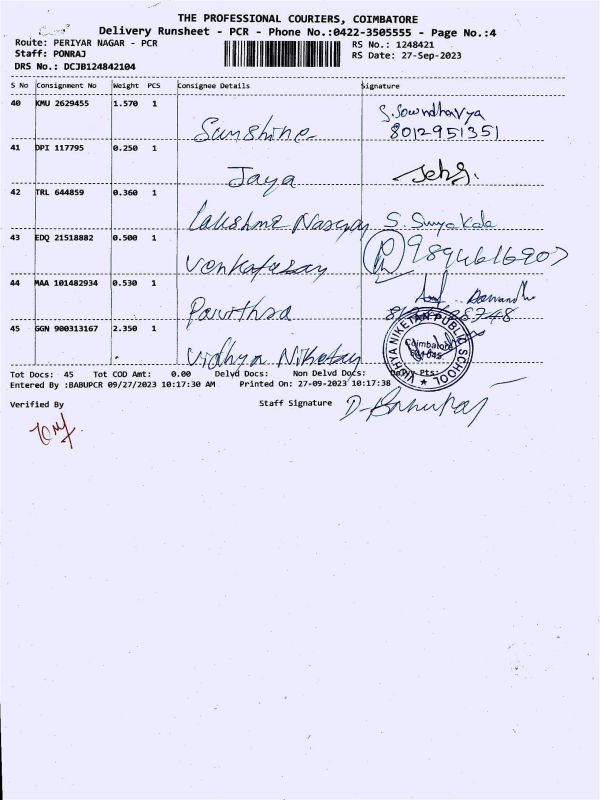 THE PROFESSIONAL COURIERS, COIMBATORE
Delivery Runsheet - PCR - Phone No.:0422-3505555 - Page No.:4
Route: PERIYAR NAGAR - PCR RS No.: 1248421
Staff: PONRAJ RS Date: 27-Sep-2023
DRS No.: DCJB124842104
S No Consignment No Weight PCS Consignee Details Signature
40 KMU 2629455 1.570 1 Sunshine S. Sowndharya
8012951351
41 DPI 117795 0.250 1 Jaya
42 TRL 644859 0.360 1 Lakshme S. Surya Kala
43 EDQ 21518882 0.500 1 Venkatesan 9894616907
44 MAA 101482934 0.530 1 Pavithra
45 GGN 900313167 2.350 1 Vidhya Niketan
VIDHYA NIKETAN PUBLIC SCHOOL
Coimbatore
Tot Docs: 45 Tot COD Amt: 0.00 Delvd Docs: Non Delvd Docs: Delvy Pts:
Entered By :BABUPCR 09/27/2023 10:17:30 AM Printed On: 27-09-2023 10:17:38
Verified By Staff Signature